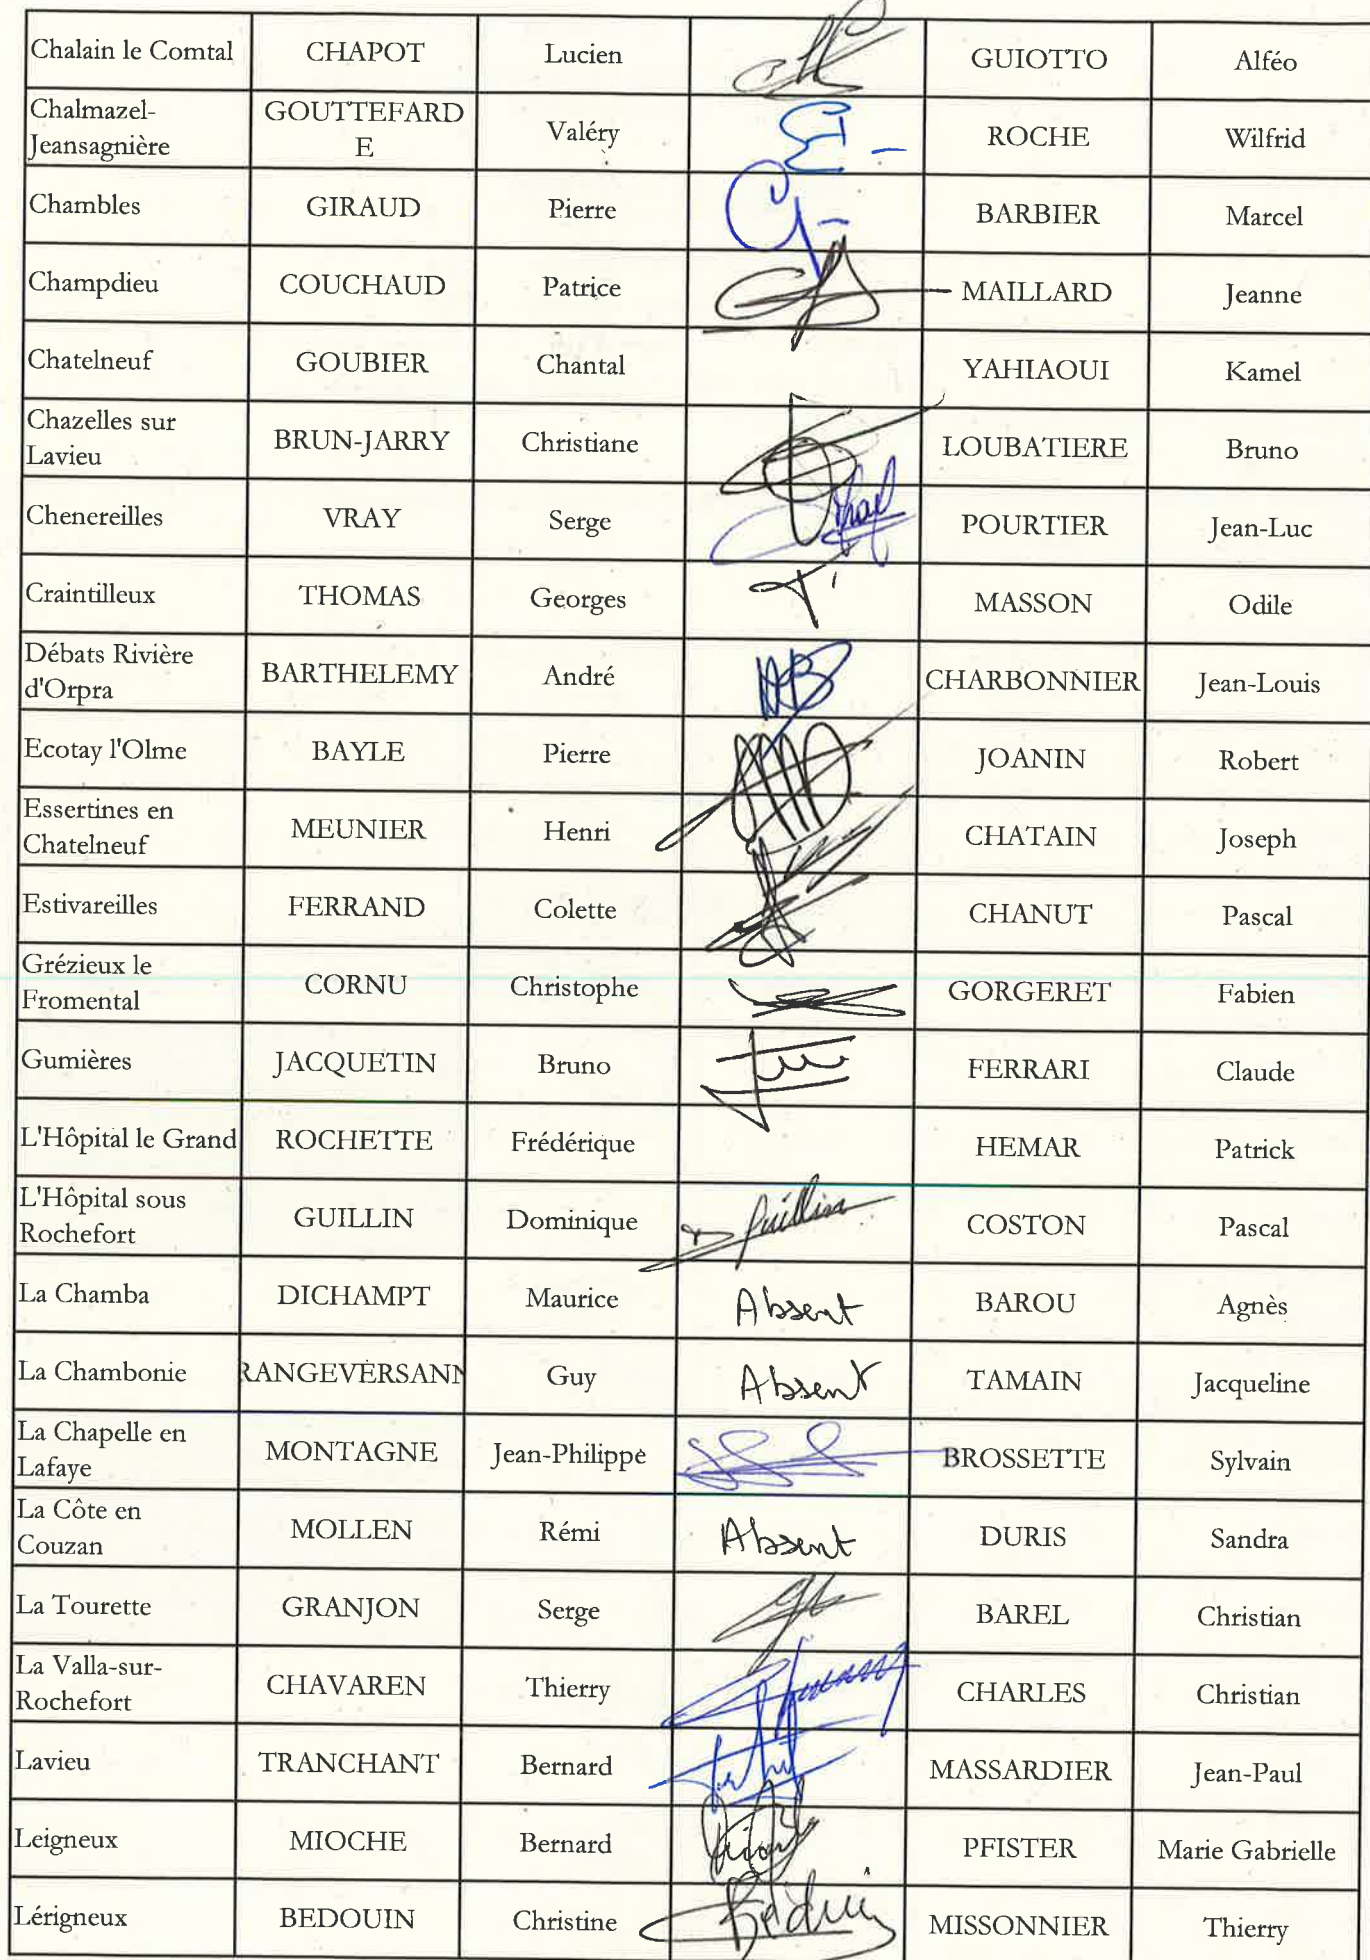 Chalain le Comtal CHAPOT Lucien GUIOTTO Alféo
Chalmazel-
Jeansagnière GOUTTEFARD
E Valéry ROCHE Wilfrid
Chambles GIRAUD Pierre BARBIER Marcel
Champdieu COUCHAUD Patrice MAILLARD Jeanne
Chatelneuf GOUBIER Chantal YAHIAOUI Kamel
Chazelles sur
Lavieu BRUN-JARRY Christiane LOUBATIERE Bruno
Chenereilles VRAY Serge POURTIER Jean-Luc
Craintilleux THOMAS Georges MASSON Odile
Débats Rivière
d'Orpra BARTHELEMY André CHARBONNIER Jean-Louis
Ecotay l'Olme BAYLE Pierre JOANIN Robert
Essertines en
Chatelneuf MEUNIER Henri CHATAIN Joseph
Estivareilles FERRAND Colette CHANUT Pascal
Grézieux le
Fromental CORNU Christophe GORGERET Fabien
Gumières JACQUETIN Bruno FERRARI Claude
L'Hôpital le Grand ROCHETTE Frédérique HEMAR Patrick
L'Hôpital sous
Rochefort GUILLIN Dominique Guillin COSTON Pascal
La Chamba DICHAMPT Maurice Absent BAROU Agnès
La Chambonie RANGEVERSANN Guy Absent TAMAIN Jacqueline
La Chapelle en
Lafaye MONTAGNE Jean-Philippe BROSSETTE Sylvain
La Côte en
Couzan MOLLEN Rémi Absent DURIS Sandra
La Tourette GRANJON Serge BAREL Christian
La Valla-sur-
Rochefort CHAVAREN Thierry CHARLES Christian
Lavieu TRANCHANT Bernard MASSARDIER Jean-Paul
Leigneux MIOCHE Bernard PFISTER Marie Gabrielle
Lérigneux BEDOUIN Christine Bedouin MISSONNIER Thierry